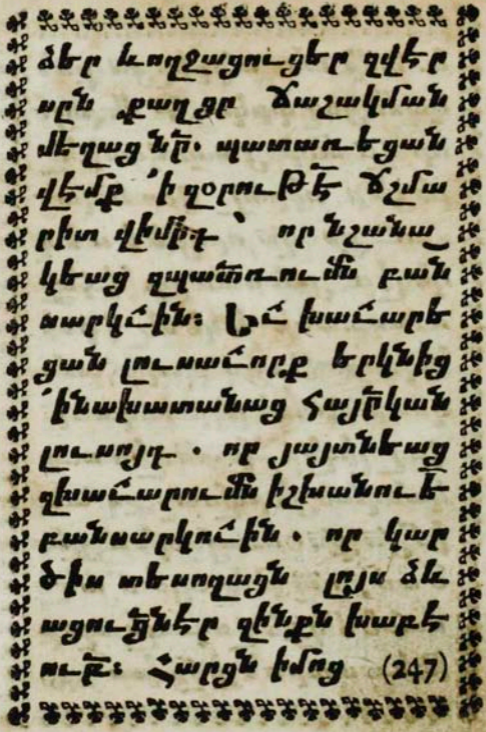 ձեր և ողջացուցեր զվէր
սըն քաղցը ճաշակման
մեղաց նր․ պատառեցան
վէմք ՚ի զօրութէ ճշմա
րիտ վիմիդ՝ որ նշանա
կեաց զպատռումն բան
սարկւին։ Եւ խաւարե
ցան լուսաւորք երկնից
՚ինախատանաց հայրկան
լուսոյդ․ որ յայտնեաց
զխաւարումն իշխանուե
բանսարկուին․ որ կար
ծիս տեսողացն լոյս ձև
ացուցնէր զինքն խաբէ
ուբ։ Հարցն իմոց (247)